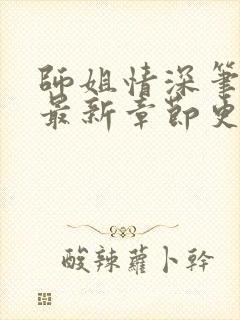 師姐情深筆
最新章節史
酸辣蘿卜幹